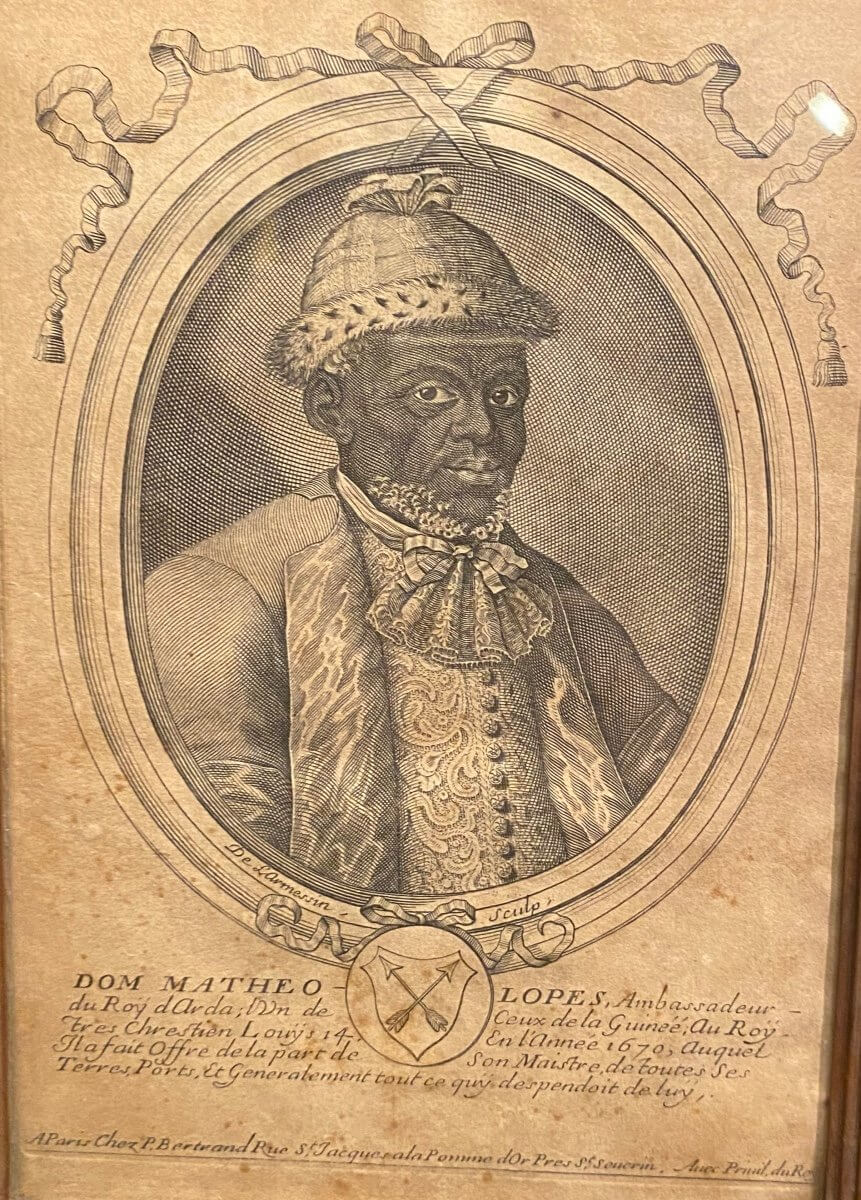 De L'armessin, Sculp,
DOM MATHEO - LOPES, Ambassadeur -
du Roÿ d'Arda; l'Vn de Ceux de la Guineé, Au Roÿ -
tres Chrestien Louÿs 14. En l'Année 1670, Auquel
Il a fait Offre de la part de Son Maistre, de toutes Ses
Terres, Ports, Et Generalement tout ce quÿ despendoit de luÿ,.
A Paris Chez P. Bertrand Rue St. Jacques a la Pomme d'Or Pres St. Seuerin. Auec Priuil. du